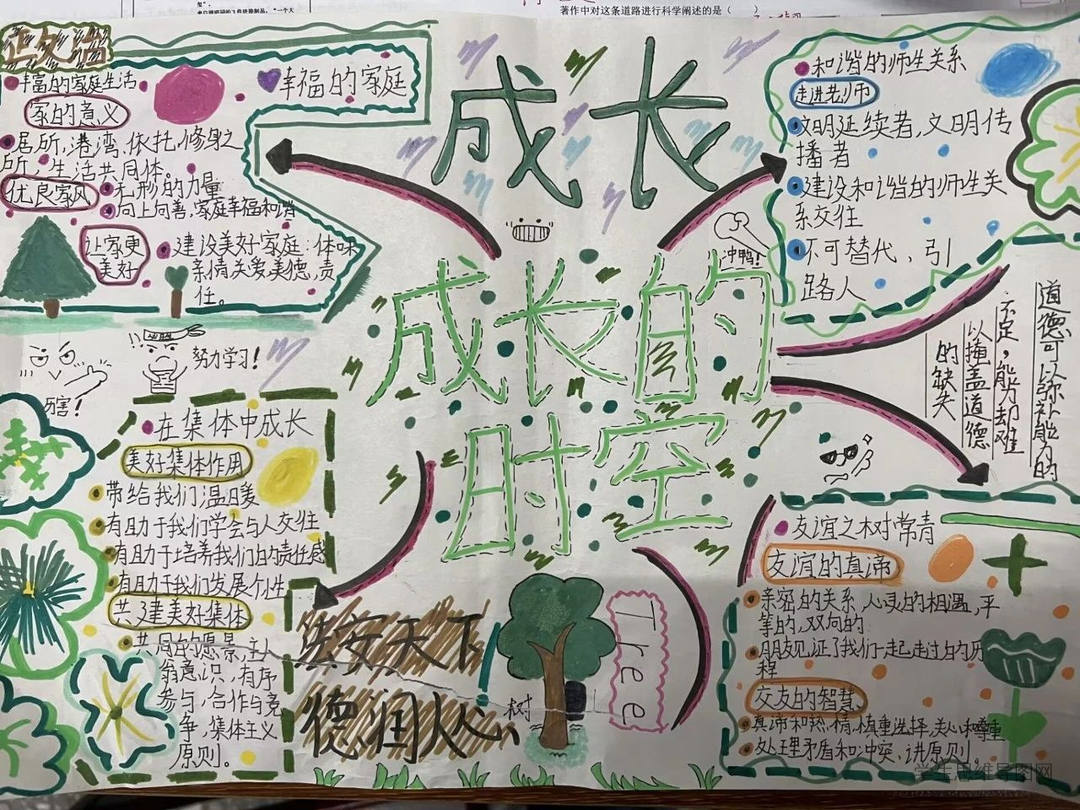 著作中对这条道路进行科学阐述的是（　　）
成长
成长的
时空
幸福的家庭
丰富的家庭生活
家的意义
居所,港湾,依托,修身之
所,生活共同体。
优良家风
无形的力量
向上向善,家庭幸福和谐
让家更
美好
建设美好家庭:体味
亲情关爱美德,责
任。
努力学习!
冲鸭!
和谐的师生关系
走进老师
文明延续者,文明传
播者
建设和谐的师生关
系交往
不可替代、引
路人
道德可以弥补能力的
不足,能力却难
以掩盖道德
的缺失
在集体中成长
美好集体作用
带给我们温暖
有助于我们学会与人交往
有助于培养我们的责任感
有助于我们发展个性
共建美好集体
共同的愿景,主人
翁意识,有序
参与,合作与竞
争,集体主义
原则。
法安天下
德润人心
树
Tree
友谊之树常青
友谊的真谛
亲密的关系,心灵的相遇,平
等的,双向的
朋友见证了我们一起走过的历
程
交友的智慧
真沛和热情,慎重选择,关心和尊重
处理矛盾和冲突、讲原则。
学生思维导图网